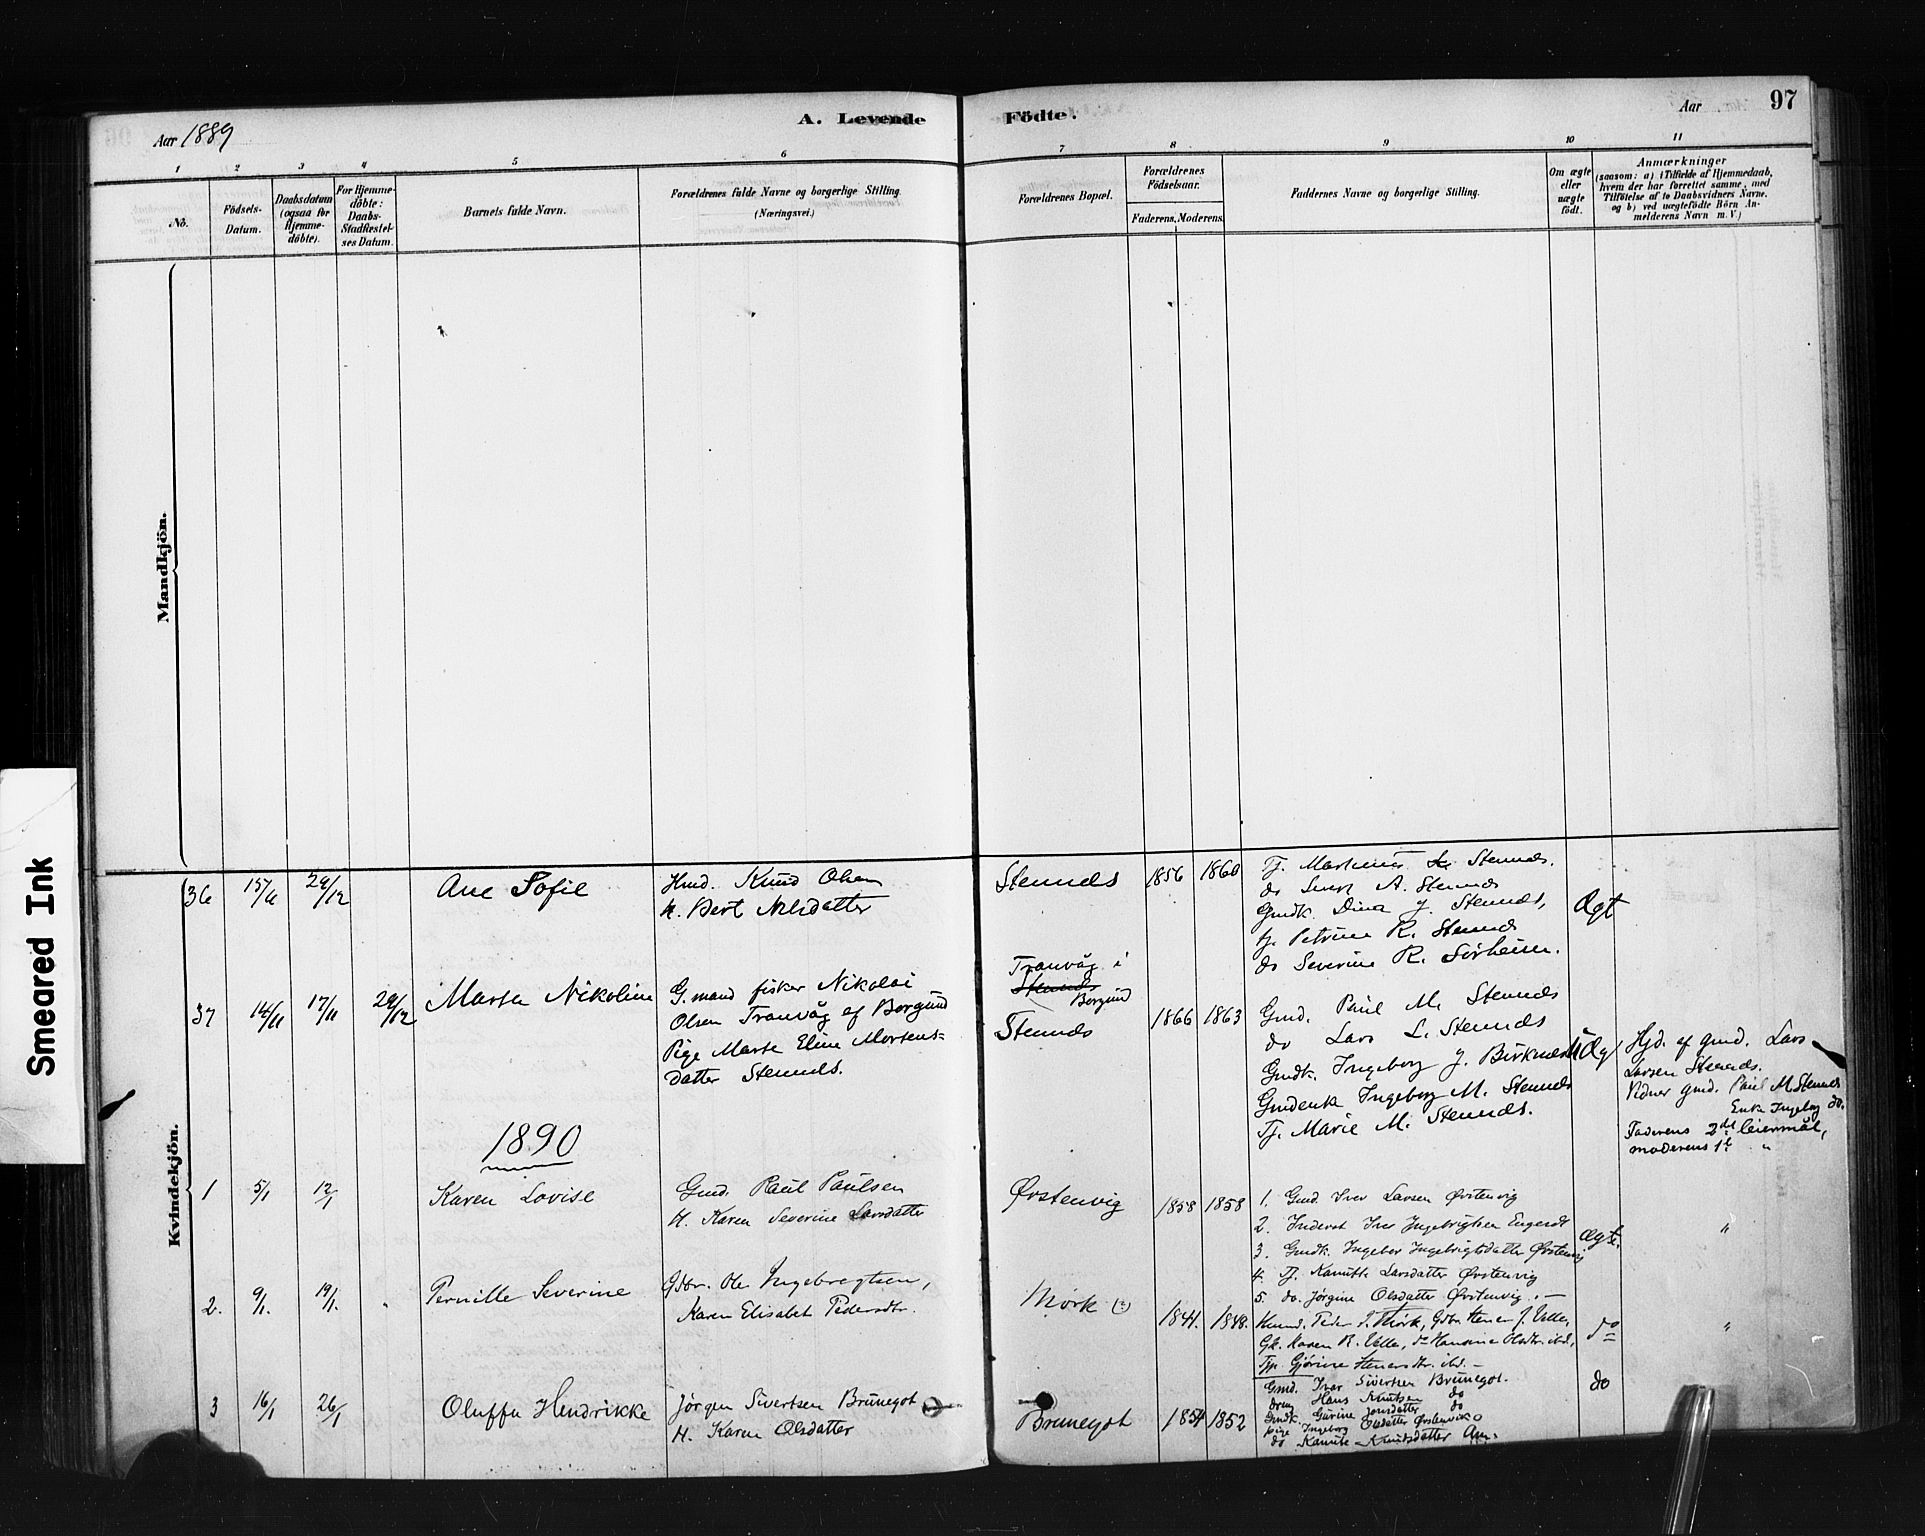 Aar 1889
A. Levende
Födte.
Aar
97
1 2 3 4 5 6 7 8 9 10 11
No.
Födsels-
Datum.
Daabsdatum
(ogsaa for
Hjemme-
döbte).
For Hjemme-
döbte:
Daabs-
Stadfæstel-
ses Datum.
Barnets fulde Navn.
Forældrenes fulde Navne og borgerlige Stilling.
(Næringsvei.)
Forældrenes Bopæl.
Forældrenes
Födselsaar.
Faderens. Moderens.
Faddernes Navne og borgerlige Stilling.
Om ægte
eller
uægte
födt.
Anmærkninger
(saasom: a) i Tilfælde af Hjemmedaab,
hvem der har forrettet samme, med
Tilföielse af to Daabsvidners Navne,
og b) ved uægtefödte Börn An-
melderens Navn m. V.)
Mandkjön.
Smeared Ink
Kvindekjön.
36
29/12
Ane Sofie
Knud Olsen
Nilsdatter
Stennes
1856
1860
Tj. Stennes.
do A. Stennes
Gmdk. Dina J. Stennes,
tj. Petrine R. Stennes
do Severine R. Sörheim.
Ægt
37
14/11
17/11
29/12
Marta Nikoline
G.mand fisker Nikolai
Olsen Tranvåg af Borgund
Pige Marte Eline Mortens-
datter Stennes.
Tranvåg i
Stennes
Borgund
Stennes
1866
1863
Gmd. Paul M. Stennes
do Lars L. Stennes
Gmdk. Ingeborg J.
Gmdenk Ingeborg M. Stennes
Tj. Marie M. Stennes.
Hjd. af gmd. Lars
Larsen Stennes.
Vidner gmd. Paul M Stennes
Enke Ingeborg do.
Faderens 2det leiermål,
moderens 1t "
1890
1
5/1
12/1
Karen Lovise
Gmd. Paul Paulsen
H. Karen Severine Larsdatter
Örstenvig
1858
1858
1. Gmd Iver Larsen Örstenvig
2. Iver Ingebrigtsen
3. Gmdk. Ingebor Ingebrigtsdatter Örstenvig
4. Tj. Larsdatter Örstenvig
5. do. Jörgine Olsdatter Örstenvig. —
Ægte.
"
2.
9/1.
19/1.
Pernille Severine
Gbr. Ole Ingebregtsen,
Karen Elisabet Pedersdtr.
Mörk
1841.
1848.
Peder Mörk, J. Velle,
Gk. Karen R. Velle, Olsdtr. ibd.,
Gjörine ibd. —
do
"
3
16/1
26/1
Oluffa Hendrikke
Jörgen Sivertsen Brunegot
H. Karen Olsdatter
Brunegot
1854
1852
Gmd. Ivar Sivertsen Brunegot.
dreng Hans Knutsen do
Gmdk. Gurine Jonsdatter do
pige Ingeborg Olsdatter Örstenvik
do Knutsdatter
do